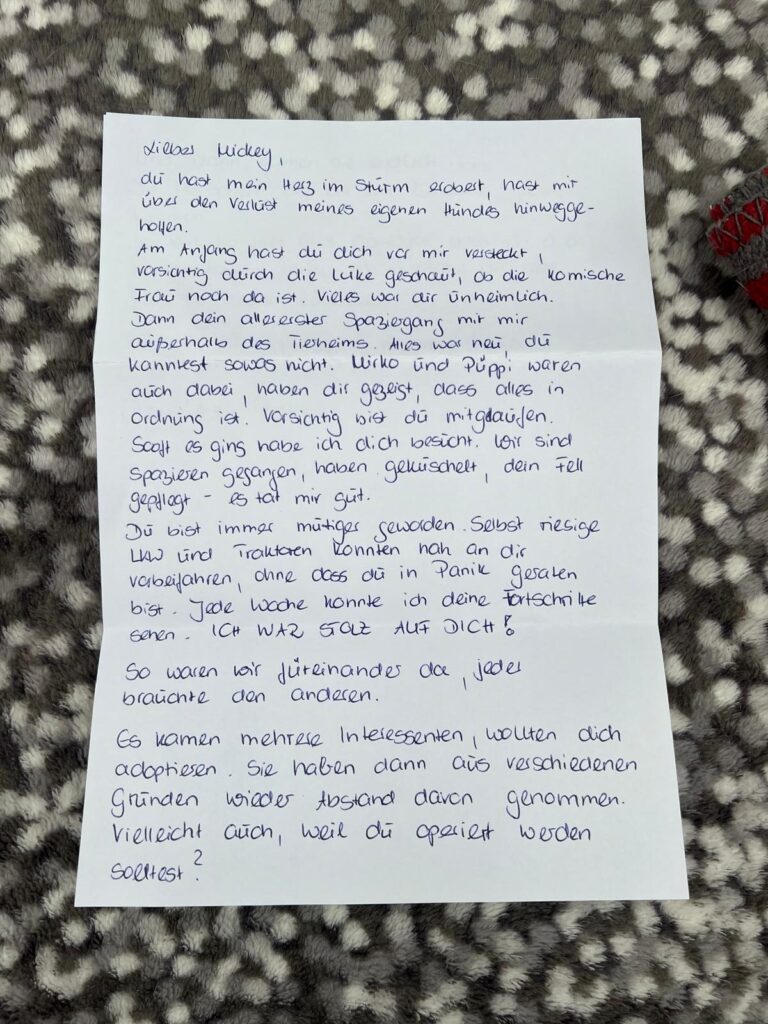 Lieber Mickey,
du hast mein Herz im Sturm erobert, hast mir
über den Verlust meines eigenen Hundes hinwegge-
holfen.
Am Anfang hast du dich vor mir versteckt,
vorsichtig durch die Luke geschaut, ob die komische
Frau noch da ist. Vieles war dir unheimlich.
Dann dein allererster Spaziergang mit mir
außerhalb des Tierheims. Alles war neu, du
kanntest sowas nicht. Mirko und Püppi waren
auch dabei, haben dir gezeigt, dass alles in
Ordnung ist. Vorsichtig bist du mitgelaufen.
Sooft es ging habe ich dich besucht. Wir sind
spazieren gegangen, haben gekuschelt, dein Fell
gepflegt - es tat mir gut.
Du bist immer mutiger geworden. Selbst riesige
LKW und Traktoren konnten nah an dir
vorbeifahren, ohne dass du in Panik geraten
bist. Jede Woche konnte ich deine Fortschritte
sehen. ICH WAR STOLZ AUF DICH!
So waren wir füreinander da, jeder
brauchte den anderen.
Es kamen mehrere Interessenten, wollten dich
adoptieren. Sie haben dann aus verschiedenen
Gründen wieder Abstand davon genommen.
Vielleicht auch, weil du operiert werden
solltest?